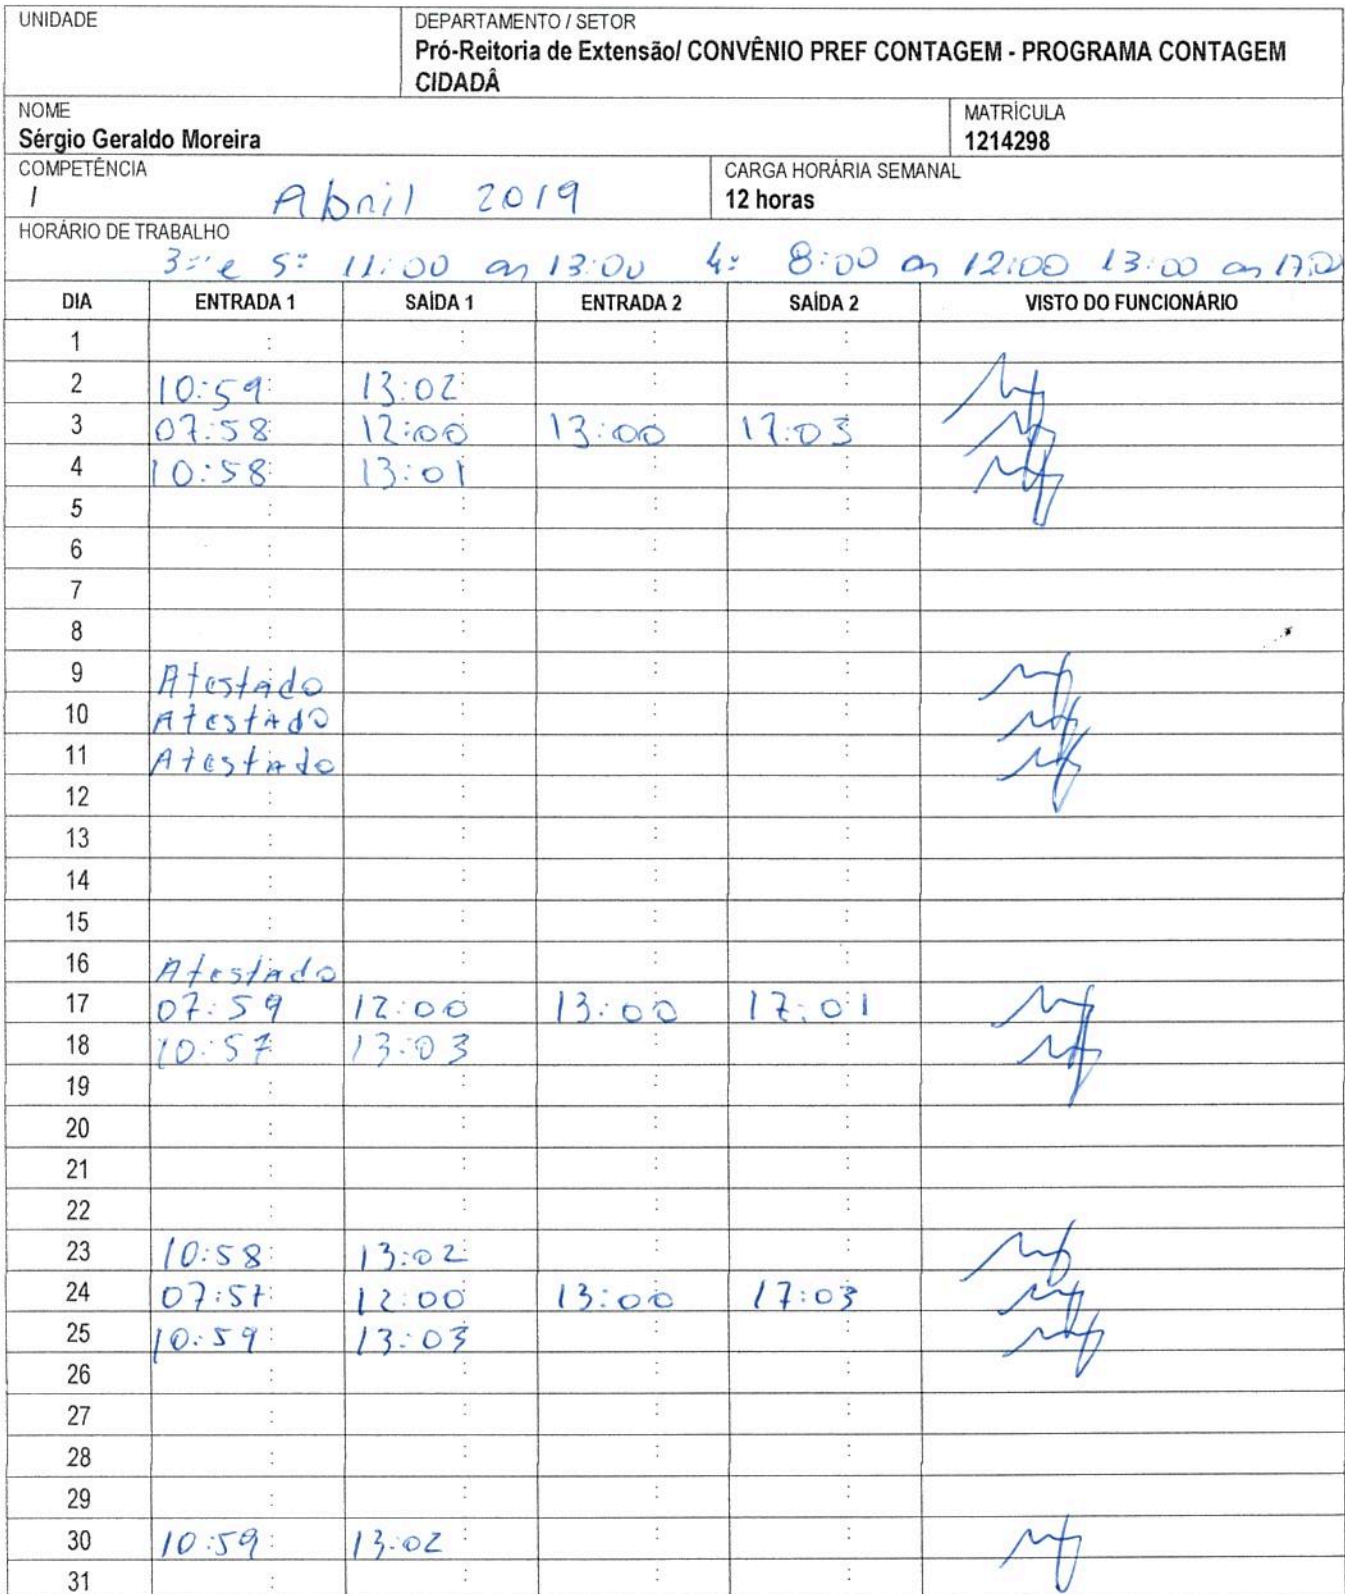 UNIDADE
DEPARTAMENTO / SETOR
Pró-Reitoria de Extensão/ CONVÊNIO PREF CONTAGEM - PROGRAMA CONTAGEM
CIDADÂ
NOME
Sérgio Geraldo Moreira
MATRÍCULA
1214298
COMPETÊNCIA
/ Abril 2019
CARGA HORÁRIA SEMANAL
12 horas
HORÁRIO DE TRABALHO
3ª e 5ª 11:00 as 13:00 4ª 8:00 as 12:00 13:00 as 17:0
DIA ENTRADA 1 SAÍDA 1 ENTRADA 2 SAÍDA 2 VISTO DO FUNCIONÁRIO
1 : : : :
2 10:59 13:02 : :
3 07:58 12:00 13:00 17:03
4 10:58 13:01 : :
5 : : : :
6 : : : :
7 : : : :
8 : : : :
9 Atestado : : :
10 Atestado : : :
11 Atestado : : :
12 : : : :
13 : : : :
14 : : : :
15 : : : :
16 Atestado : : :
17 07:59 12:00 13:00 17:01
18 10:57 13:03 : :
19 : : : :
20 : : : :
21 : : : :
22 : : : :
23 10:58 13:02 : :
24 07:57 12:00 13:00 17:03
25 10:59 13:03 : :
26 : : : :
27 : : : :
28 : : : :
29 : : : :
30 10:59 13:02 : :
31 : : : :